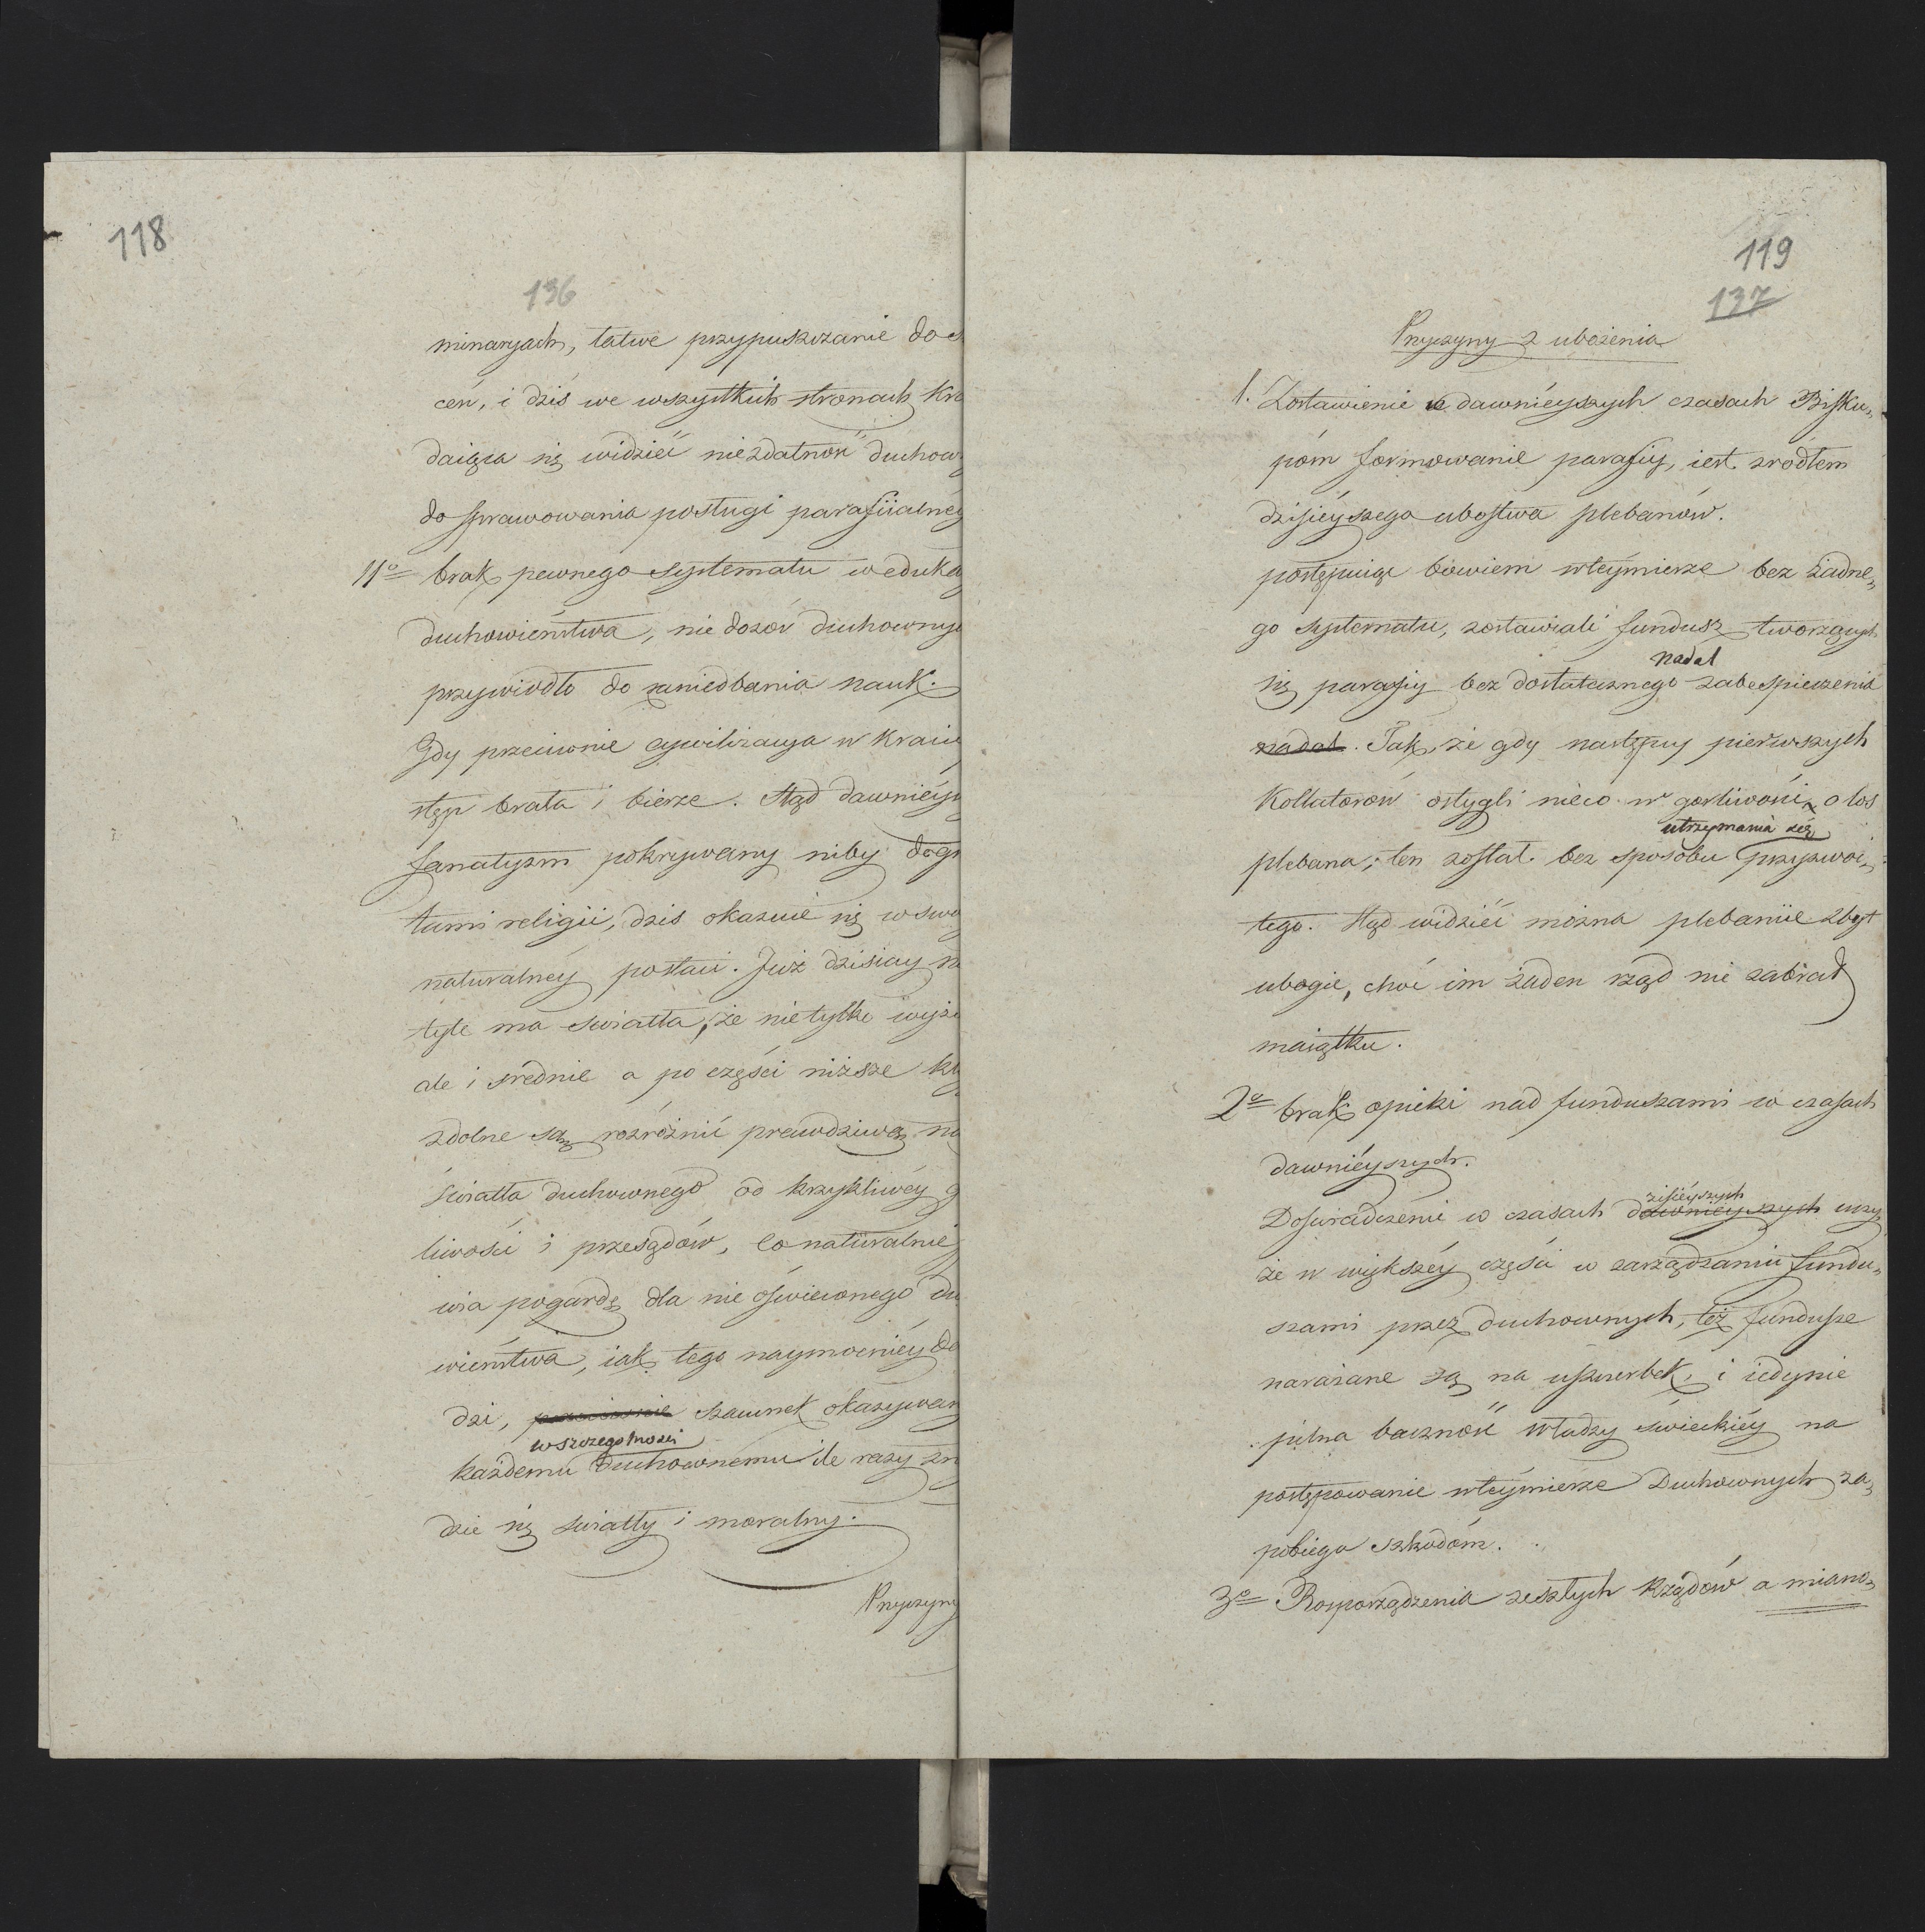 118
136
minaryach, łatwe przypuszczanie do s
ceń, i dziś we wszystkich stronach Kra
daiąca się widzieć niezdatność duchow
do sprawowania posługi parafiialnéy
11o brak pewnego systematu w eduka
duchowieństwa, niedozór duchownyc
przywiodło do zaniedbania nauk.
Gdy przeciwnie cywilizacya w kraiu
stęp brała i bierze. Stąd dawniéys
fanatyzm pokrywany niby dogm
tami religii, dziś okazuie się w swo
naturalnéy postaci. Już dzisiay n
tyle ma światła, że nietylko wyżs
ale i średnie a po części niższe kl
zdolne są rozróżnić prawdziwą na
światła duchownego od krzykliwéy g
liwości i przesądów, Co naturalnie
wia pogardę dla nie oświeconego du
wieństwa, iak tego naymocniéy do
dzi, przeciwnie szacunek okazywan
wszczególności
każdemu Duchownemu ile razy zn
dzie się światły i moralny.
Przyczyny
119
137
Przyczyny zubożenia
1. Zostawienie w dawniéyszych czasach Bisku„
póm formowanie parafiy, iest zrodłem
dzisiéyszego ubostwa plebanów.
postępuiąc bowiem wtéymierze bez żadne„
go systematu, zostawiali fundusz tworzących
nadal
się parafiy bez dostatecznego zabespieczenia
nadal. Tak, że gdy następcy pierwszych
Kollatorów ostygli nieco w gorliwości o los
utrzymania się
plebana; ten został bez sposobu przyzwoi„
tego. Stąd widzieć można plebaniie zbyt
ubogie, choć im żaden rząd nie zabrał
maiątku.
2o brak opieki nad funduszami w czasach
dawniéyszych.
zisiéyszych
Doswiadczenie w czasach dawniéyszych uczy
że w większéy części w zarządzaniu fundu„
szami przez duchownych, też fundusze
narażane są na uszczerbek, i iedynie
pilna baczność Władzy świeckiéy na
postępowanie wtéymierze Duchownych za„
pobiega szkodóm.
3o Rozporządzenia zeszłych Rządów a miano„